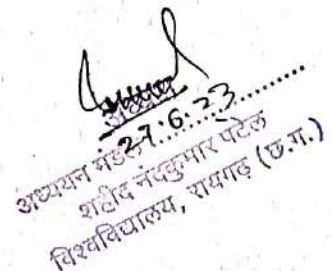 अध्यक्ष
27.6.23
अध्ययन मंडल
शहीद नंदकुमार पटेल
विश्वविद्यालय, रायगढ़ (छ.ग.)